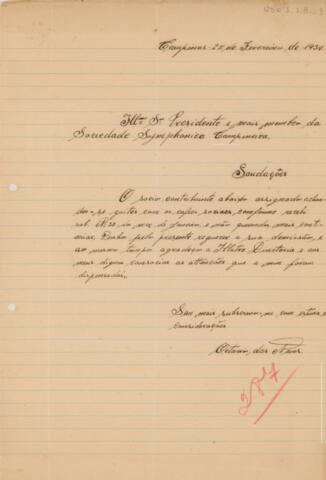 Campinas 25 de Fevereiro de 1934
Illmo Sr Presidente e mais membros da
Sociedade Symphonica Campineira.
Saudações
O socio contribuinte abaixo assignado achan-
do-se quites com os cofres sociaes, conforme recibo
sob Nº 20 do mez de Janeiro e não podendo mais conti-
nuar, venho pelo presente requerer a sua demissão, e
ao mesmo tempo agradeço a Illustre Directoria e aos
meus dignos consocios as attenções que a mim foram
dispensadas.
Sem mais subscrevo-me com estima e
considerações
Octavio das Neves